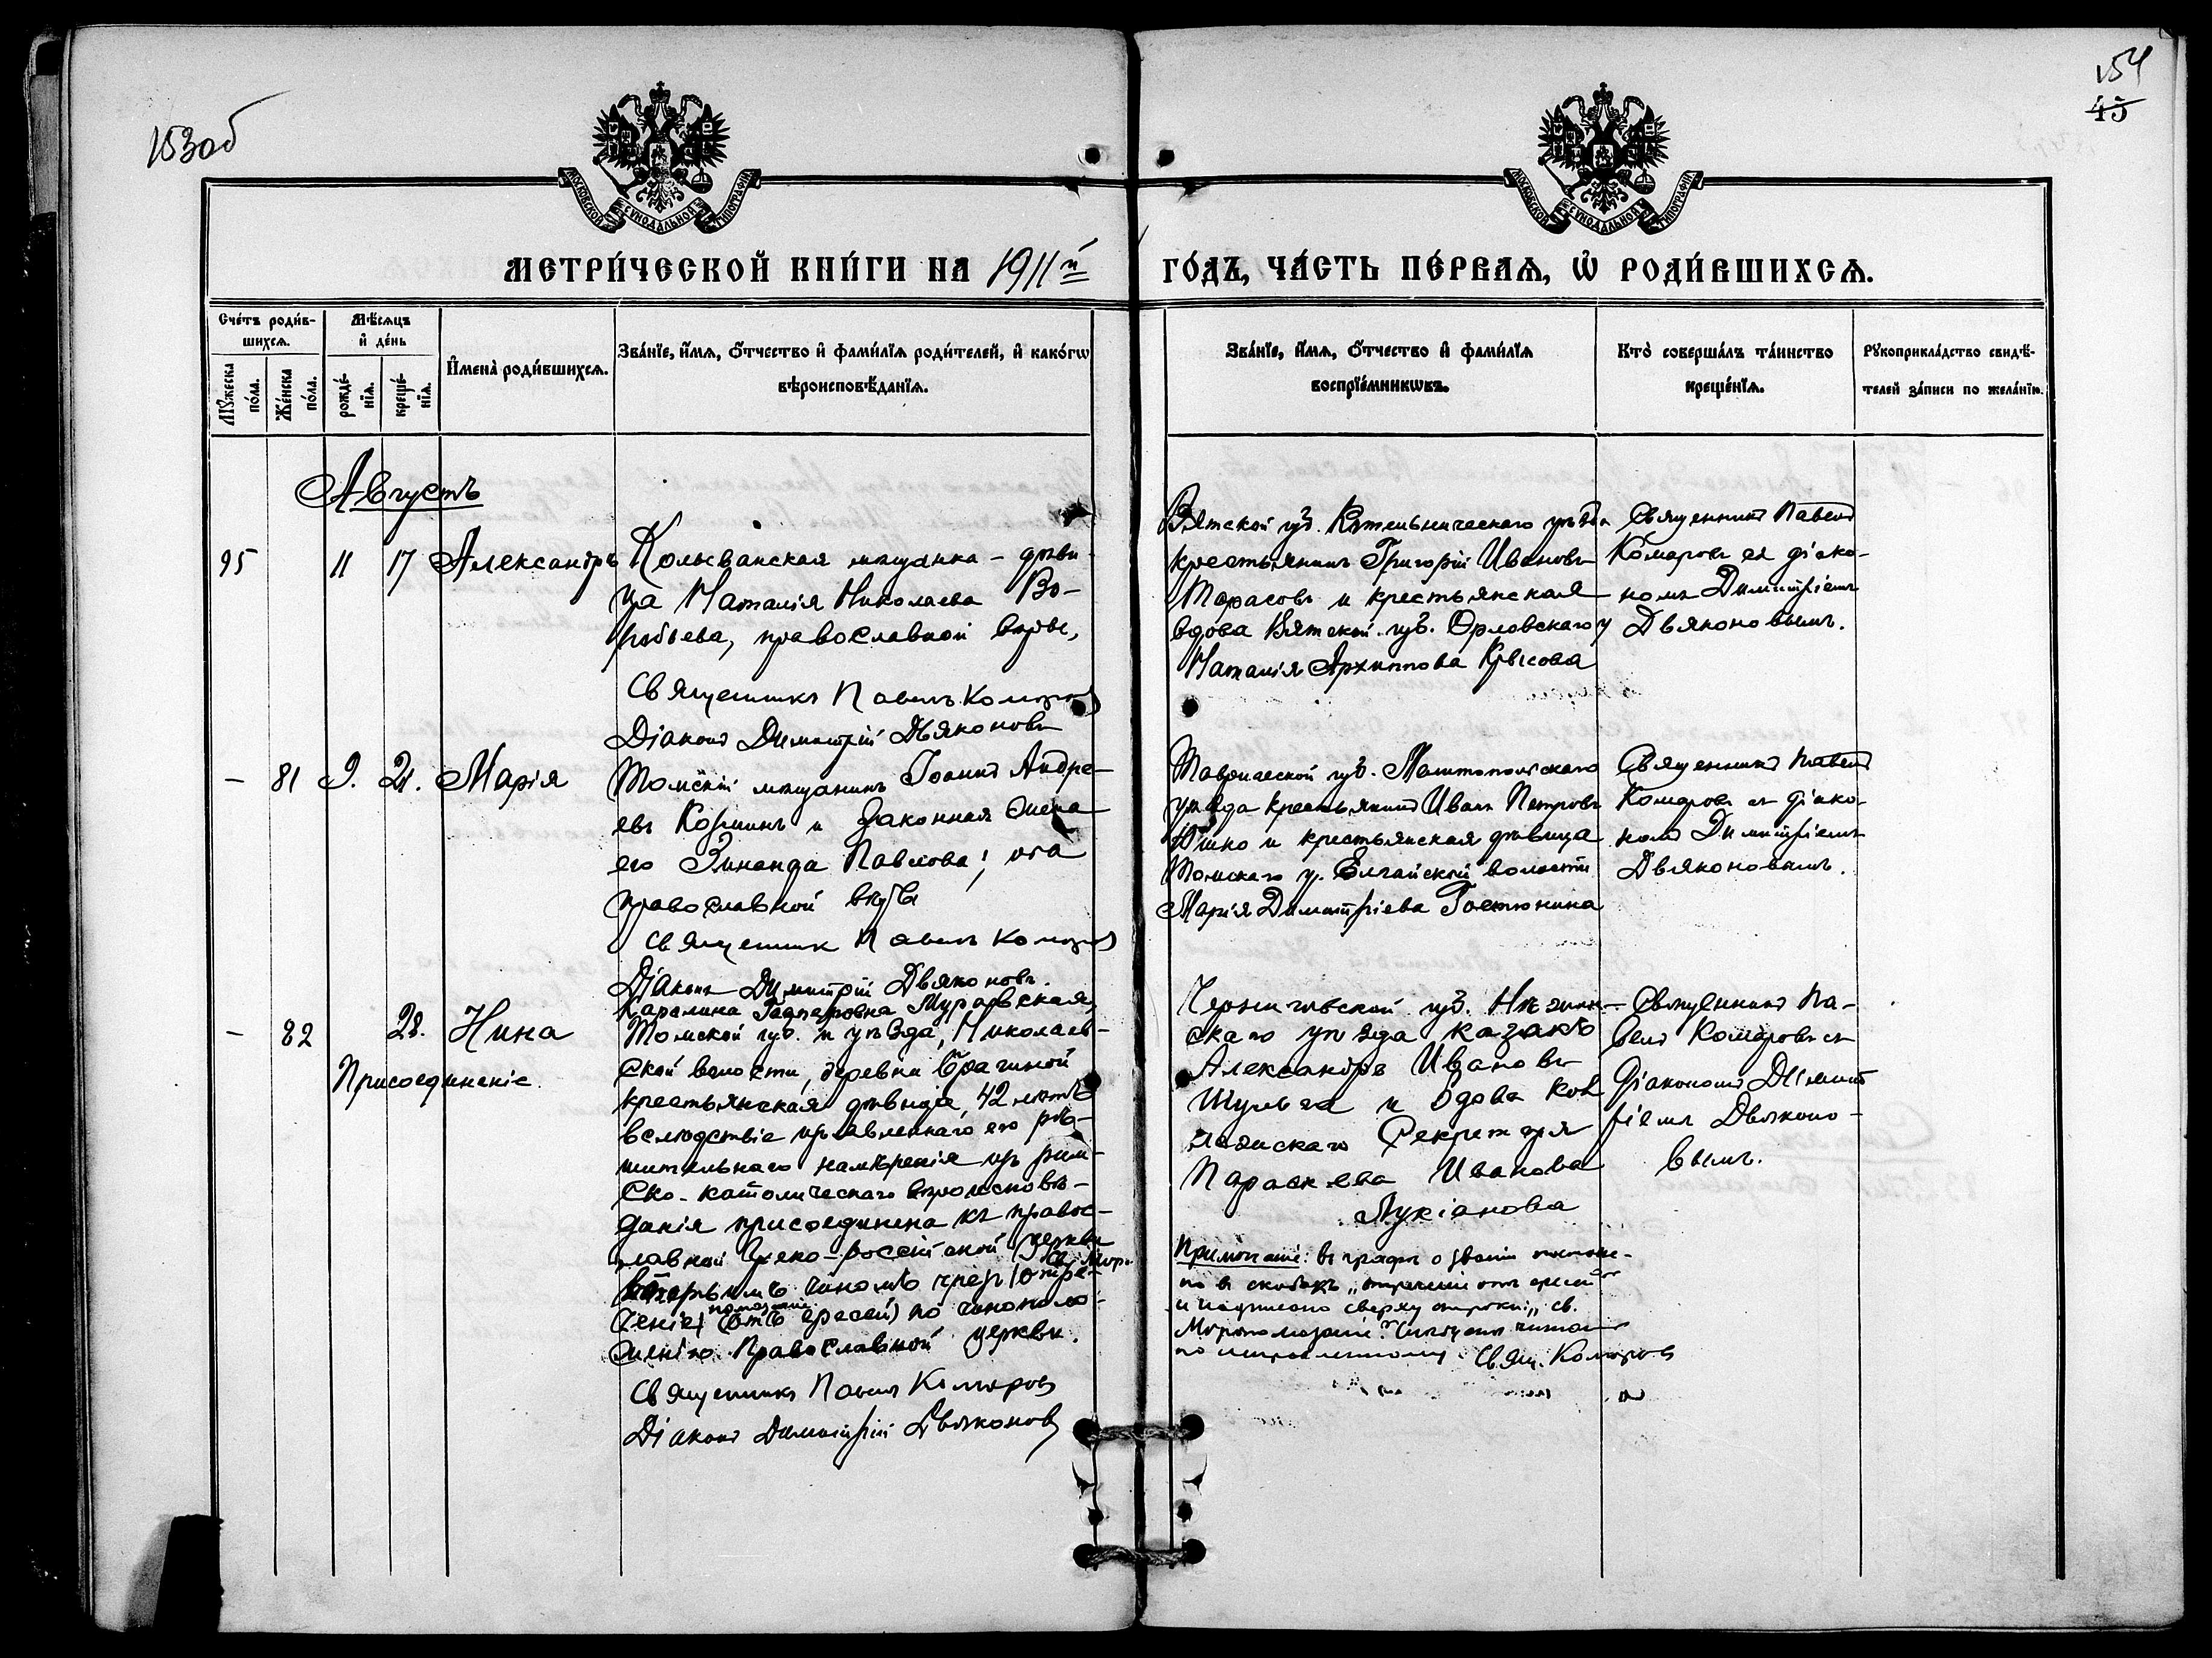 153об
154
45
МОСКОВСКОЙ СѴНОДАЛЬНОЙ ТИПОГРАФІИ
МОСКОВСКОЙ СѴНОДАЛЬНОЙ ТИПОГРАФІИ
МЕТРИ́ЧЕСКОЙ КНИ́ГИ НА 1911й
ГО́ДЪ, ЧА́СТЬ ПЕ́РВАѦ, Ѡ҆ РОДИ́ВШИХСѦ.
Сче́тъ роди́в-
шихсѧ.
Мꙋ́жеска по́ла.
Же́нска по́ла.
Мѣ́сѧцъ
и҆ де́нь
рожде́-
нїѧ.
креще́-
нїѧ.
И҆мена̀ роди́вшихсѧ.
Зва́нїе, и҆́мѧ, ѻ҆́тчество и҆ фами́лїѧ роди́телей, и҆ како́гѡ
вѣроисповѣ́данїѧ.
Зва́нїе, и҆́мѧ, ѻ҆́тчество и҆ фами́лїѧ
воспрїе́мникѡвъ.
Кто̀ соверша́лъ та́инство
креще́нїѧ.
Рꙋкоприкла́дство свидѣ́-
телей за́писи по жела́нїю.
Августъ
95
11
17
Александръ
Колыванская мѣщанка - дѣви-
ца Наталія Николаева Во-
робьева, православной вѣры,
Священникъ Павелъ Комаров
Діаконъ Димитрій Дьяконовъ
Вятской губ. Котельническаго уѣзда
крестьянинъ Григорій Ивановъ
Тарасовъ и крестьянская
вдова Вятской губ. Орловскаго у
Наталія Архиппова Крысова
Священникъ Павелъ
Комаровъ съ діако-
номъ Димитріемъ
Дьяконовымъ.
-
81
9.
21.
Марія
Томскій мѣщанинъ Іоаннъ Андре-
евъ и законная жена
его Зинаида Павлова; оба
православной вѣры
Священник Павелъ Комаров
Діаконъ Димитрій Дьяконовъ.
Таврической губ. Мелитопольскаго
уѣзда крестьянинъ Иванъ Петровъ
и крестьянская дѣвица
Томскаго у. Елгайской волости
Марія Димитріева Гостюнина
Священникъ Павелъ
Комаровъ съ діако-
номъ Димитріемъ
Дьяконовымъ.
-
82
28.
Нина
Присоединеніе
Каралина Гаспаровна Муравская,
Томской губ. и уѣзда, Николаев-
ской волости, деревни
крестьянская дѣвица, 42 лѣтъ
вслѣдствіе изъявленнаго ею рѣ-
шительнаго намѣренія изъ рим-
ско-католическаго вѣроисповѣ-
данія присоединена къ правос-
лавной Греко-россійской церкви
вторымъ чиномъ чрезъ (отре-
ченіе) (отъ ересей) по чиноположе-
Св. Мѵро-
помазаніе
нію Православной церкви.
Священникъ Павелъ Комаров
Діаконъ Димитрій Дьяконовъ
Черниговской губ. Нѣжин-
скаго уѣзда казакъ
Александръ Ивановъ
Шульга и вдова Кол
лежскаго Секретаря
Параскева Иванова
Лукіанова
Священникъ Па-
велъ Комаровъ съ
Діакономъ Димит
ріемъ Дьяконо-
вымъ.
Примѣчаніе: въ графѣ о званіи поставле-
но въ скобкахъ „отреченіе отъ ересей“
и надписано сверху строки: „св.
Мѵропомазаніе“. Слѣдуетъ читать
по исправленному Свящ. Комаров